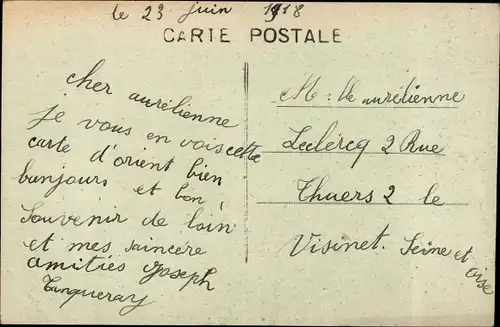 le 23 juin 1918
CARTE POSTALE
cher aurélienne
je vous en vois cette
carte d'orient bien
bonjours et bon
souvenir de loin
et mes saincère
amitiés Joseph
Tinqueray
M : lle aurélienne
Leclércq 2 Rue
Thuers 2 le
Visinet. Seine et oise